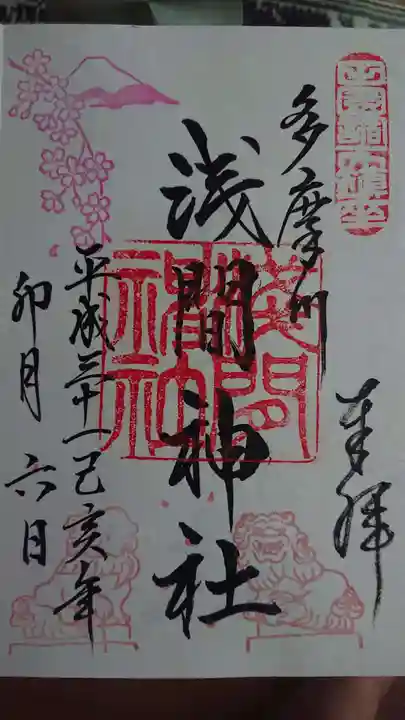 奉拝
多摩川
浅間神社
浅間神社
平成三十一己亥年
卯月六日